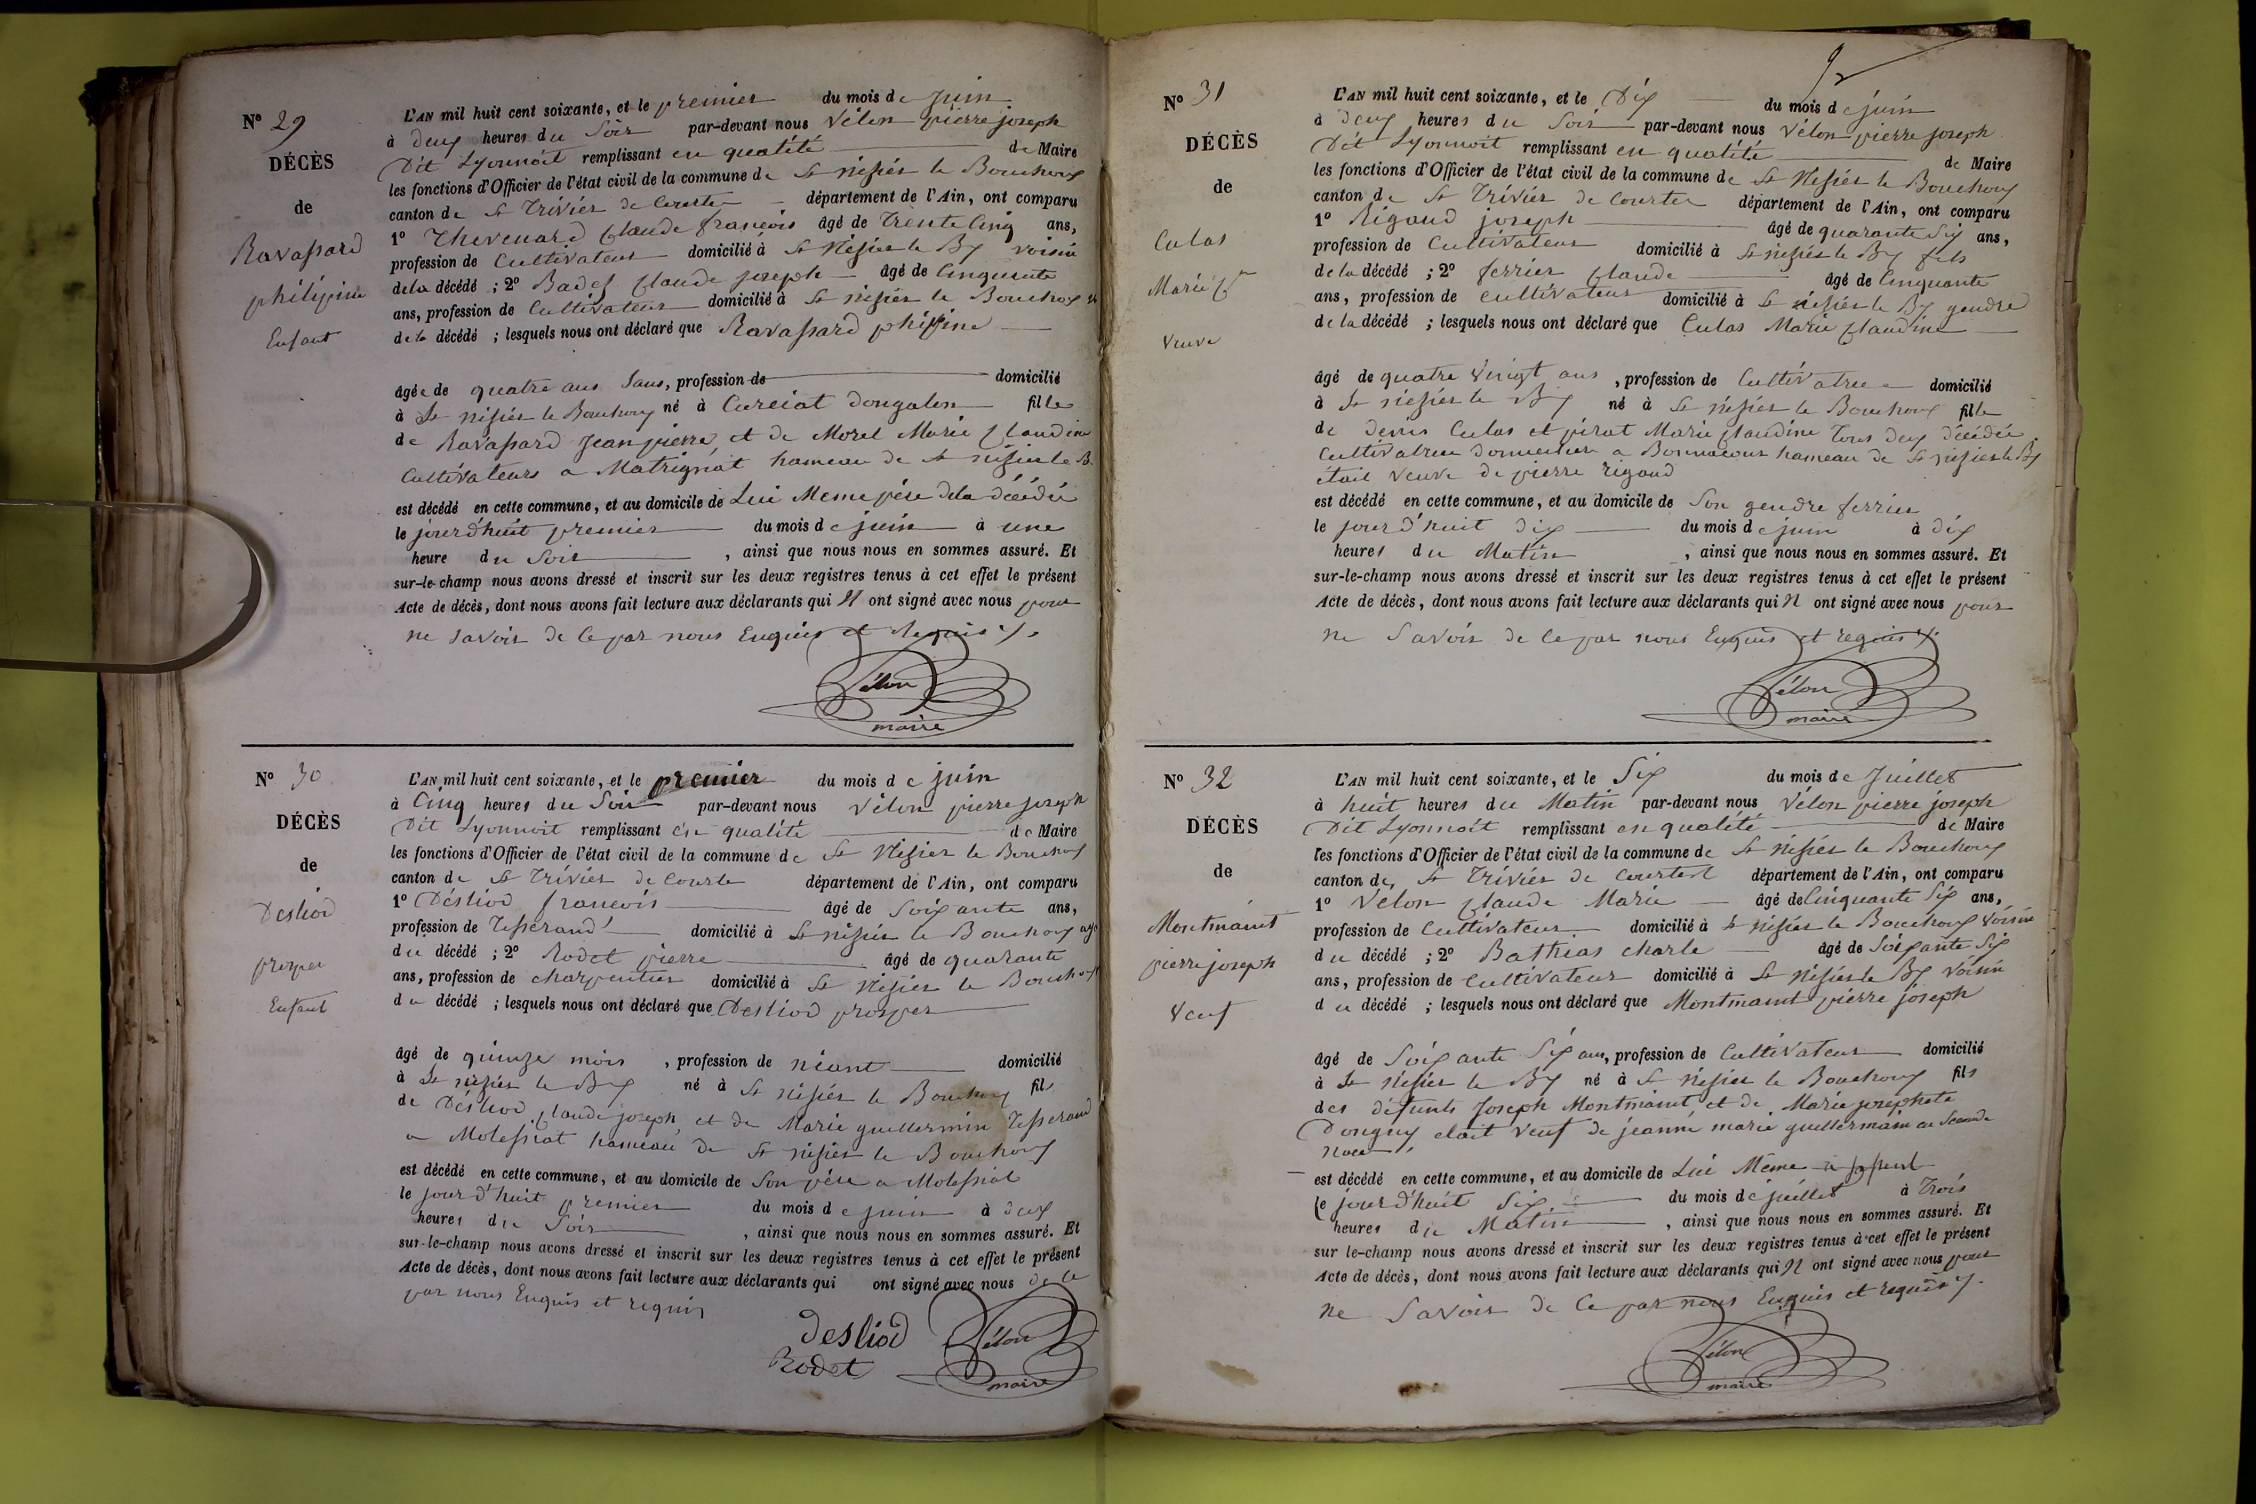 N° 29
DÉCÈS
de
Ravassard
philipine
Enfant
L'AN mil huit cent soixante, et le premier du mois de juin
à deux heures du Soir par-devant nous Vélon pierre joseph
Dit Lyonnoit remplissant en qualité de Maire
les fonctions d'Officier de l'état civil de la commune de St nisier le Bouchoux
canton de St Trivier de Courte département de l'Ain, ont comparu
1° Thevenard Claude françois âgé de Trente Cinq ans,
profession de Cultivateur domicilié à St Nisier le Bx voisin
de la décédé ; 2° Badez Claude joseph âgé de Cinquente
ans, profession de Cultivateur domicilié à St nisier le Bouchoux
de la décédé ; lesquels nous ont déclaré que Ravassard phipine
âgée de quatre ans Sans, profession de domicilié
à St nisier le Bouchoux né à Curciat dongalon fille
de Ravassard Jean pierre, et de Morel Marie Claudine
Cultivateurs a Matrignat hameau de St nisier le B.
est décédé en cette commune, et au domicile de Lui Meme père dela décédée
le jourd'huit premier du mois de juin à une
heure du Soir , ainsi que nous nous en sommes assuré. Et
sur-le-champ nous avons dressé et inscrit sur les deux registres tenus à cet effet le présent
Acte de décès, dont nous avons fait lecture aux déclarants qui N ont signé avec nous pour
ne savoir de Ce par nous Enquis et Requis ./.
Vélon
maire
N° 30
DÉCÈS
de
Desliod
prosper
Enfant
L'AN mil huit cent soixante, et le premier du mois de juin
à Cinq heures du Soir par-devant nous Vélon pierre joseph
Dit Lyonnoit remplissant en qualité de Maire
les fonctions d'Officier de l'état civil de la commune de St Nisier le Bouchoux
canton de St Trivier de Courte département de l'Ain, ont comparu
1° Désliod françois âgé de Soixante ans,
profession de Tesserand domicilié à St nisier le Bouchoux aye
du décédé ; 2° Rodet pierre âgé de quarante
ans, profession de charpentier domicilié à St Nisier le Bouchoux
du décédé ; lesquels nous ont déclaré que Desliod prosper
âgé de quinze mois , profession de néant domicilié
à St nisier le Bx né à St nisier le Bouchoux fils
de Désliod Claude joseph, et de Marie guillermin Tesserand
a Molessiat hameau de St nisier le Bouchoux
est décédé en cette commune, et au domicile de Son père a Molessiat
le jourd'huit premier du mois de juin à deux
heures du Soir , ainsi que nous nous en sommes assuré. Et
sur-le-champ nous avons dressé et inscrit sur les deux registres tenus à cet effet le présent
Acte de décès, dont nous avons fait lecture aux déclarants qui ont signé avec nous de Ce
par nous Enquis et requis
desliod
Rodet
Vélon
maire
N° 31
DÉCÈS
de
Culas
Marie Cne
Veuve
L'AN mil huit cent soixante, et le Dix du mois de juin
à deux heures du Soir par-devant nous Vélon pierre joseph
Dit Lyonnoit remplissant en qualité de Maire
les fonctions d'Officier de l'état civil de la commune de St Nisier le Bouchoux
canton de St Trivier de Courte département de l'Ain, ont comparu
1° Rigaud joseph âgé de quarante Six ans,
profession de Cultivateur domicilié à St nisier le Bx fils
de la décédé ; 2° ferrier Claude âgé de Cinquante
ans, profession de Cultivateur domicilié à St nisier le Bx gendre
de la décédé ; lesquels nous ont déclaré que Culas Marie Claudine
âgé de quatre Vingt ans , profession de Cultivatrice domicilié
à St nisier le Bx né à St nisier le Bouchoux fille
de denis Culas et pérat Marie Claudine Tous deux décédée
Cultivatrice a Bonnacour hameau de St nisier le Bx
était Veuve de pierre rigaud
est décédé en cette commune, et au domicile de Son gendre ferrier
le jour d'huit dix du mois de juin à dix
heures du Matin , ainsi que nous nous en sommes assuré. Et
sur-le-champ nous avons dressé et inscrit sur les deux registres tenus à cet effet le présent
Acte de décès, dont nous avons fait lecture aux déclarants qui N ont signé avec nous pour
ne Savoir de Ce par nous Enquis et requis ./.
Vélon
maire
N° 32
DÉCÈS
de
Montmaint
pierre joseph
Veuf
L'AN mil huit cent soixante, et le Six du mois de Juillet
à huit heures du Matin par-devant nous Vélon pierre joseph
Dit Lyonnoit remplissant en qualité de Maire
les fonctions d'Officier de l'état civil de la commune de St nisier le Bouchoux
canton de St Trivier de Courtest département de l'Ain, ont comparu
1° Vélon Claude Marie âgé de Cinquante Six ans,
profession de Cultivateur domicilié à St nisier le Bouchoux Voisin
du décédé ; 2° Bathias charle âgé de Soixante Six
ans, profession de Cultivateur domicilié à St nisier le Bx Voisin
du décédé ; lesquels nous ont déclaré que Montmaint pierre joseph
âgé de Soixante Six ans, profession de Cultivateur domicilié
à St nisier le Bx né à St nisier le Bouchoux fils
des défunts Joseph Montmaint et de Marie josephete
Dongny etait Veuf de jeanne marie guillermain en Seconde
noce
est décédé en cette commune, et au domicile de Lui Même
le jourd'huit Six du mois de juillet à Trois
heures du Matin , ainsi que nous nous en sommes assuré. Et
sur le-champ nous avons dressé et inscrit sur les deux registres tenus à cet effet le présent
Acte de décès, dont nous avons fait lecture aux déclarants qui N ont signé avec nous pour
ne Savoir de Ce par nous Enquis et requis ./.
Vélon
maire